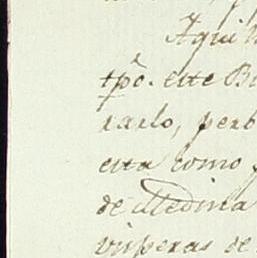 Aqui
tpô. este B
rarlo, perb
esta como
de Medina
visperas de